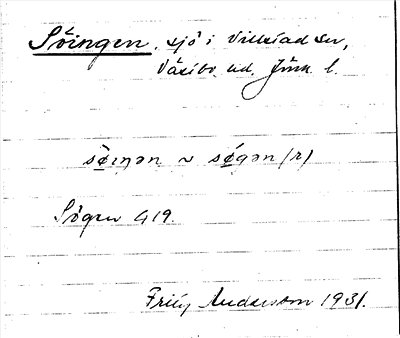 Söingen, sjö i Villstad sn,
Västbo hd. Jönk. l.
sö̀ıŋən ~ sǿgən (r)
Sögen G 19.
Fritz Anderson 1931.